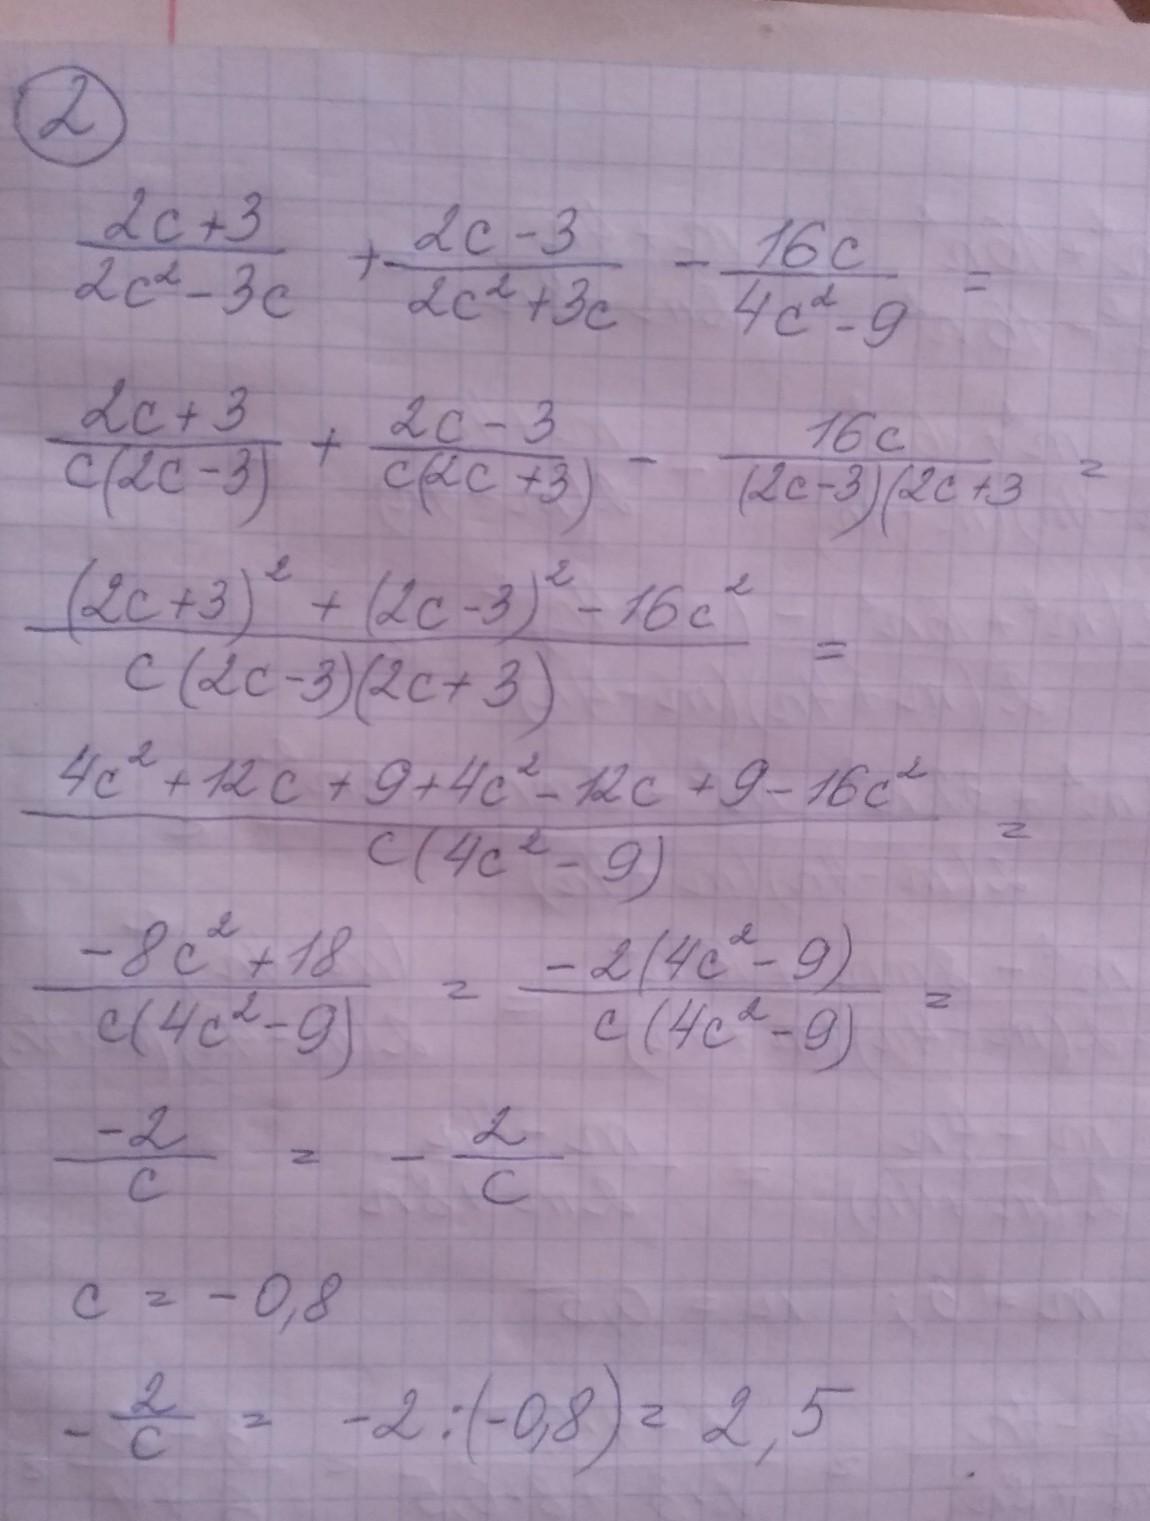 2
(2c+3)/(2c²-3c) + (2c-3)/(2c²+3c) - 16c/(4c²-9) =
(2c+3)/(c(2c-3)) + (2c-3)/(c(2c+3)) - 16c/((2c-3)(2c+3) =
((2c+3)²+(2c-3)²-16c²)/(c(2c-3)(2c+3)) =
(4c²+12c+9+4c²-12c+9-16c²)/(c(4c²-9)) =
(-8c²+18)/(c(4c²-9)) = (-2(4c²-9))/(c(4c²-9)) =
-2/c = - 2/c
c = -0,8
- 2/c = -2:(-0,8) = 2,5